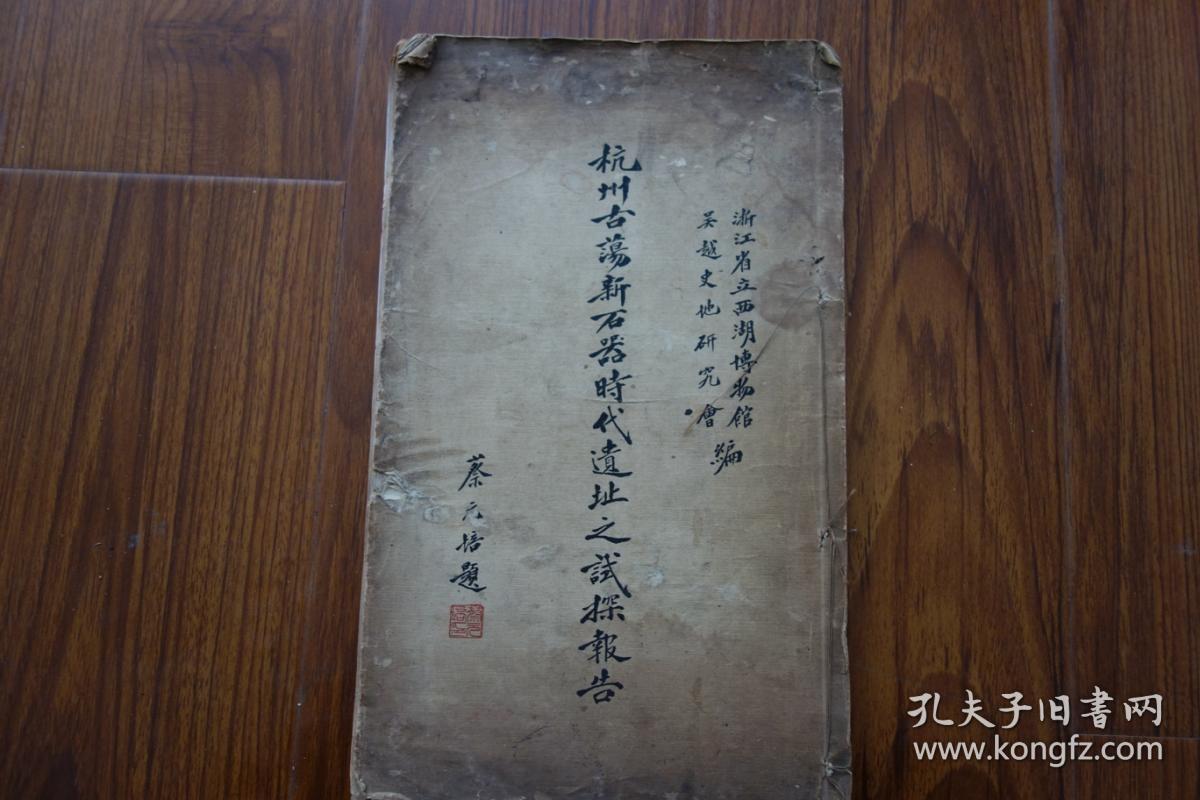 浙江省立西湖博物館
吳越史地研究會
編
杭州古蕩新石器時代遺址之試探報告
蔡元培題
孔夫子旧書网
www.kongfz.com